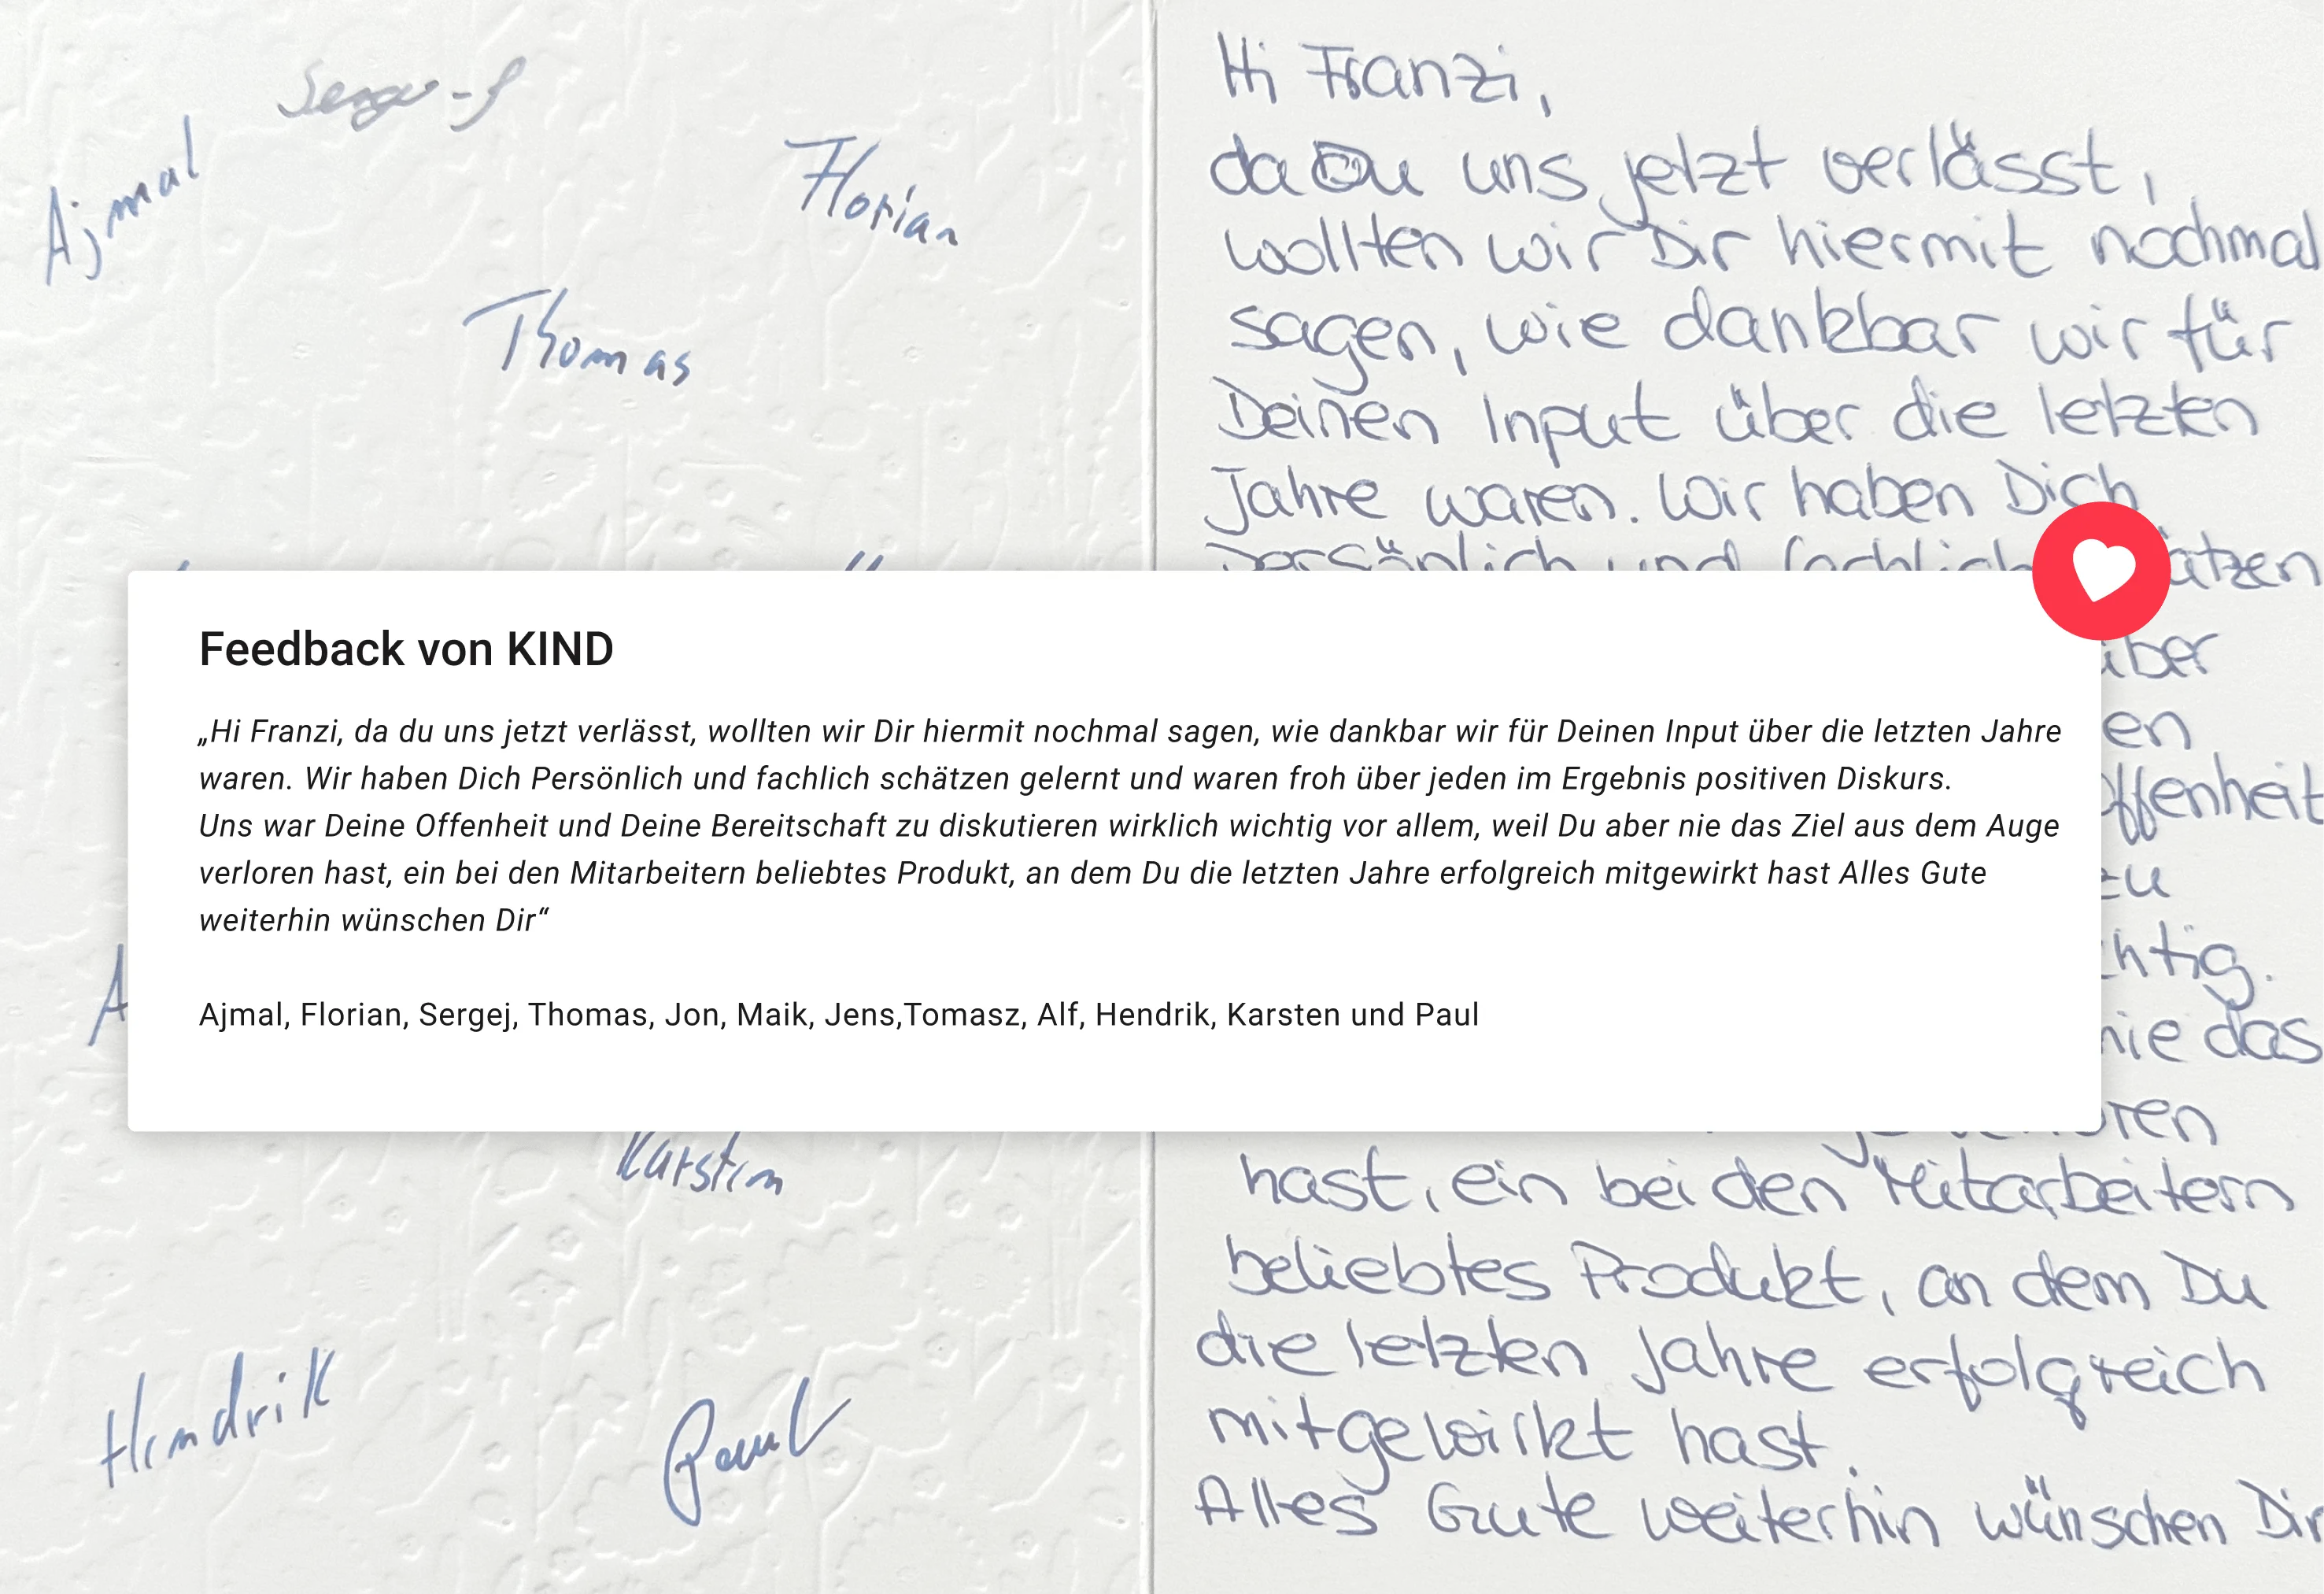 Sergej
Ajmal
Florian
Thomas
Hi Franzi,
da Du uns jetzt verlässt,
wollten wir Dir hiermit nochmal
sagen, wie dankbar wir für
Deinen Input über die letzten
Jahre waren. Wir haben Dich
persönlich und fachlich
Feedback von KIND
„Hi Franzi, da du uns jetzt verlässt, wollten wir Dir hiermit nochmal sagen, wie dankbar wir für Deinen Input über die letzten Jahre
waren. Wir haben Dich Persönlich und fachlich schätzen gelernt und waren froh über jeden im Ergebnis positiven Diskurs.
Uns war Deine Offenheit und Deine Bereitschaft zu diskutieren wirklich wichtig vor allem, weil Du aber nie das Ziel aus dem Auge
verloren hast, ein bei den Mitarbeitern beliebtes Produkt, an dem Du die letzten Jahre erfolgreich mitgewirkt hast Alles Gute
weiterhin wünschen Dir“
Ajmal, Florian, Sergej, Thomas, Jon, Maik, Jens,Tomasz, Alf, Hendrik, Karsten und Paul
über
Offenheit
zu
nie das
Karsten
hast, ein bei den Mitarbeitern
beliebtes Produkt, an dem Du
die letzten Jahre erfolgreich
mitgewirkt hast.
Alles Gute weiterhin wünschen Dir
Hendrik
Paul